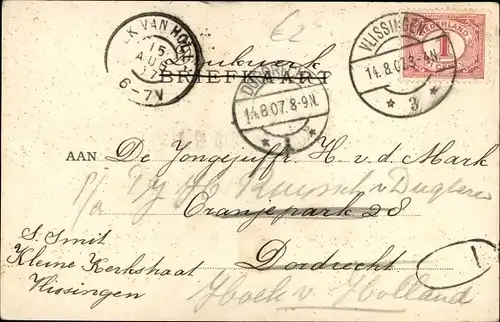 £2
K VAN HOLL
15
AUG
07
6-7V
Drukwerk
BRIEFKAART
DORDR
14.8.07.8-9N.
1
VLISSINGEN
14.8.07.8-9N.
3
NEDERLAND
1
CENT
AAN De Jongejuffr. H. v. d. Mark
p/a
Oranjepark 28
Dordrecht
S. Smit
Kleine Kerkstraat
Vlissingen
Hoek v Holland
1